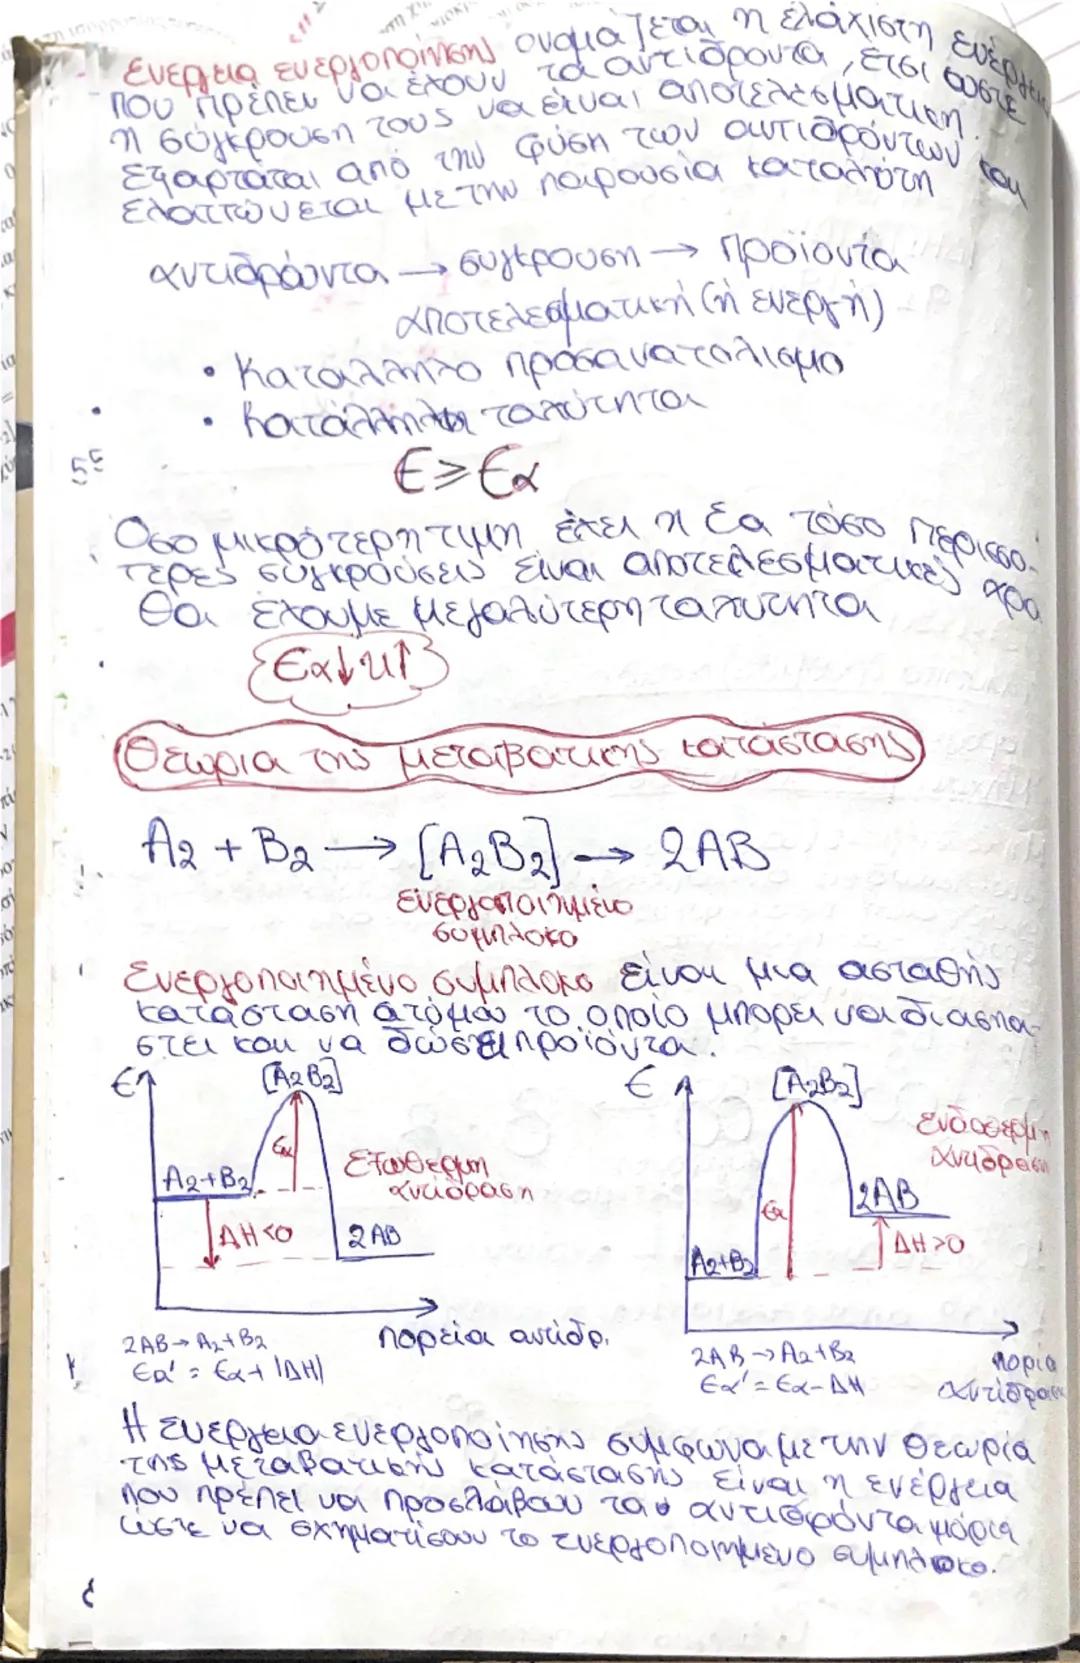 Ενέργεια ενεργοποίησης ονομάζεται η ελάχιστη ενέργεια
που πρέπει να έχουν τα αντιδρόντα, έτσι ώστε
η σύγκρουση τους να είναι αποτελεσματική.
Εξαρτάται από την φύση των αντιδρόντων και
ελαττώνεται με την παρουσία καταλύτη
αντιδρώντα → σύγκρουση → προϊόντα
αποτελεσματική (ή ενεργή)
• Κατάλληλο προσανατολισμο
• κατάλληλη ταχύτητα
55
E ≥ Eα
Όσο μικρότερη τιμη έχει η Εα τόσο περισσο-
τερες συγκρούσεις είναι αποτελεσματικές άρα
θα έχουμε μεγαλύτερη ταχυτητα
Eα↓ u↑
Θεωρια της μεταβατικης κατάστασης
A2 + B2 → [A2B2] → 2AB
ενεργοποιημένο
σύμπλοκο
Ενεργοποιημένο συμπλοκο είναι μια ασταθής
κατάσταση ατόμων το οποίο μπορει να διασπα-
στει και να δώσει προϊόντα.
E [A2B2]
A2+B2 Eα
Εξωθερμη
αντίδραση
ΔH<0 2AB
πορεία αντίδρ.
2AB → A2+B2
Eα' = Eα+ |ΔH|
E [A2B2]
Ενδοθερμη
αντιδραση
2AB
Eα ΔH>0
A2+B2
πορια
αντίδραση
2AB → A2+B2
Eα' = Eα - ΔH
Η ενεργεια ενεργοποίησης σύμφωνα με την θεωρία
της μεταβατικής κατάστασης είναι η ενέργεια
που πρέπει να προσλάβουν τα αντιδρόντα μόρια
ώστε να σχηματίσουν το ενεργοποιημένο συμπλοκο.